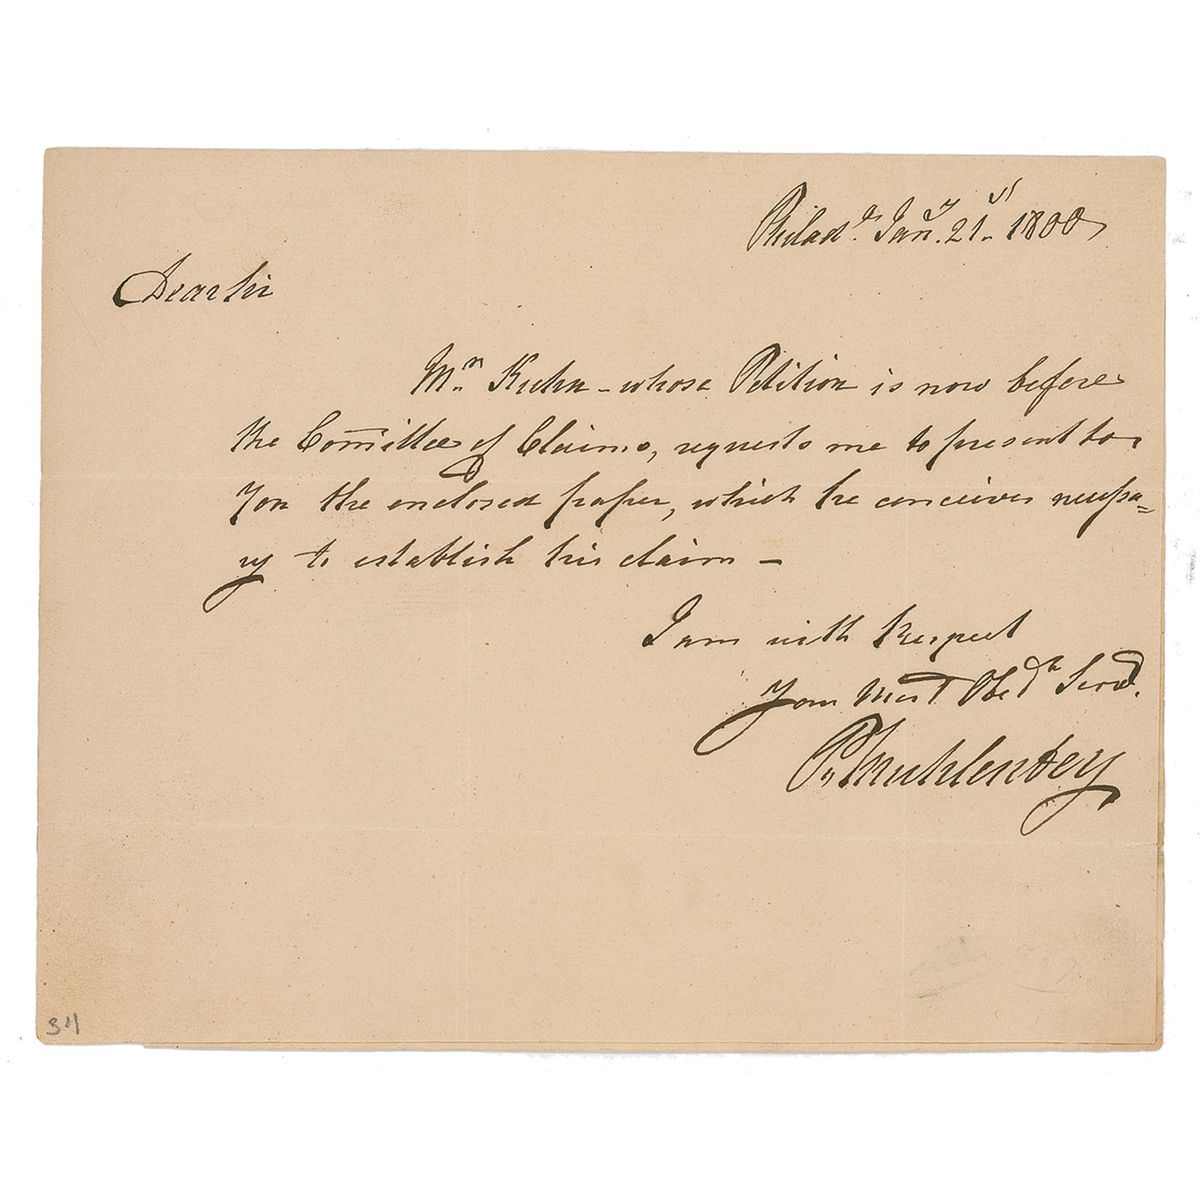 Philad.ª Jan.y 21.st 1800
Dear Sir
Mr. Kuhn - whose Petition is now before
the Com̄ittee of Claims, requests me to present to
You the enclosed paper, which he conceives necessa=
ry to establish his claim -
I am with Respect
Your Most Obed.t Serv.t
P. Muhlenberg
34